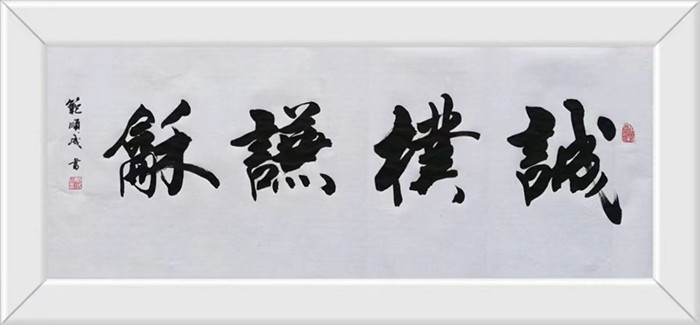 誠樸謙龢
範順成書